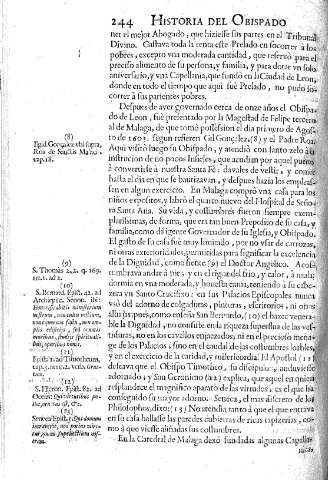 244 HISTORIA DEL OBISPADO
net el mejor Abogado, que hiziesse sus partes en el Tribunal
Divino. Gastava toda la renta este Prelado en socorrer à los
pobres, excepto vna moderada cantidad, que reservó para el
preciso alimento de su persona, y familia, y para dotar vn solo
aniversario, y vna Capellania, que fundó en la Ciudad de Leon,
donde en todo el tiempo que aqui fuè Prelado, no pudo socorrer
à sus parientes pobres.
Despues de aver governado cerca de onze años el Obispado
de Leon, fuè presentado por la Magestad de Felipe tercero
al de Malaga, de que tomó possession el dia primero de Agosto
de 1603. segun refieren Gil Gonçalez, (8) y el Padre Roa.
Aqui visitò luego su Obispado, y atendiò con santo zelo à la
instruccion de no pocos Infieles, que acudian por aquel puerto
à convertirse à nuestra Santa Fè: davales de vestir, y comer
hasta el dia en que se bautizavan, y despues hazia los empleassen
en algun exercicio. En Malaga comprò vna casa para los
niños expositos, y labrò el quarto nuevo del Hospital de Señora
Santa Ana. Su vida, y costumbres fueron siempre exemplarissimas,
de forma, que era tan buen Preposito de su casa, y
familia, como diligente Governador de su Iglesia, y Obispado.
El gasto de su casa fuè muy limitado, por no vsar de carrozas,
ni otras exterioridades, permitidas para significar la excelencia
de la Dignidad, como siente (9) el Doctor Angelico. Acostumbrava
andar à pies, y en el rigor del frio, y calor, à mula:
dormia en vna moderada, y honesta cama, teniendo à su cabezera
vn Santo Crucifixo: en sus Palacios Episcopales nunca
viò adorno de colgaduras, ni pinturas, escritorios, ni otras
alhajas; pues, como enseña San Bernardo, (10) el hazer venerable
la Dignidad, no consiste en la riqueza superflua de las vestiduras,
no en los cavallos enjaezados, ni en el precioso menage
de los Palacios; sino en el caudal de las costumbres loables,
y en el exercicio de la caridad, y misericordia. El Apostol (11)
deseava que el Obispo Timotheo, su discipulo, anduviesse
adornado; y San Geronimo (12) explica, que aquel en quien
resplandece el magnifico aparato de las virtudes, es el que ha
conseguido su mayor adorno. Seneca, el mas discreto de los
Philosophos, dixo: (13) No atendia tanto à el que entrava
en su casa hallasse las paredes cubiertas de ricas tapizerias, como
à que viesse aliñadas sus costumbres.
En la Catedral de Malaga dexò fundadas algunas Capellanias
(8)
Egid. Gonçalez vbi supra,
Roa de Sanctis Malac.
cap. 18.
(9)
S. Thomas 2. 2. q. 169.
art. 1. ad 2.
(10)
S. Bernard. Epist. 42. ad
Archiepisc. Senon.
(11)
Epist. 1. ad Timotheum,
cap. 3.
(12)
S. Hieron. Epist. 82. ad
Ocean.
(13)
Seneca Epist. 5.